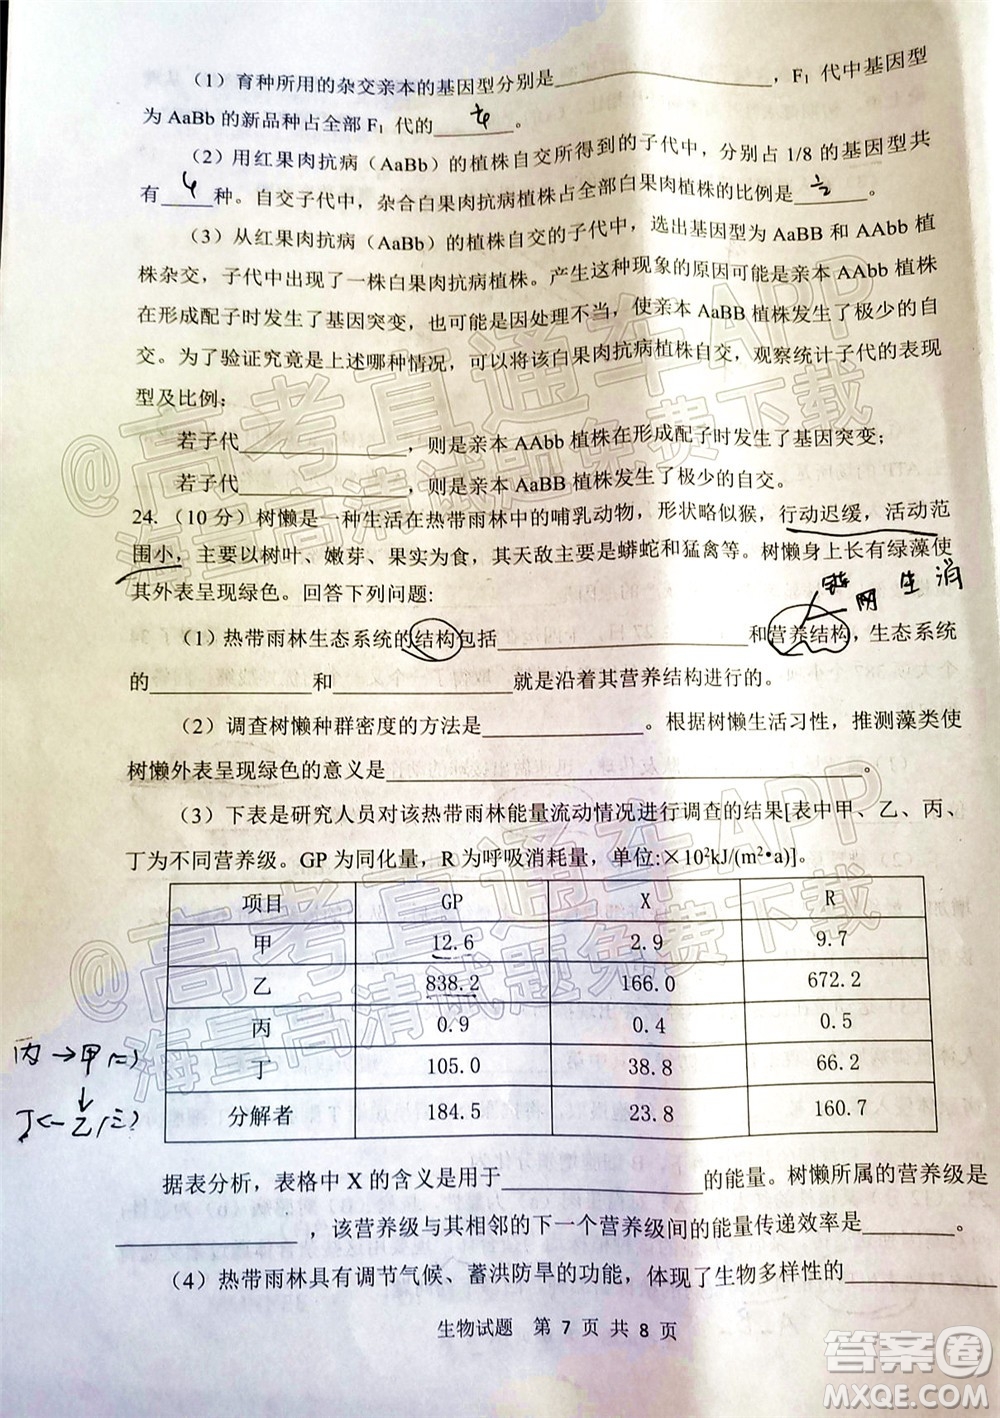 （1）育种所用的杂交亲本的基因型分别是____________，F₁ 代中基因型
为 AaBb 的新品种占全部 F₁ 代的______。
（2）用红果肉抗病（AaBb）的植株自交所得到的子代中，分别占 1/8 的基因型共
有 4 种。自交子代中，杂合白果肉抗病植株占全部白果肉植株的比例是 ½ 。
（3）从红果肉抗病（AaBb）的植株自交的子代中，选出基因型为 AaBB 和 AAbb 植
株杂交，子代中出现了一株白果肉抗病植株。产生这种现象的原因可能是亲本 AAbb 植株
在形成配子时发生了基因突变，也可能是因处理不当，使亲本 AaBB 植株发生了极少的自
交。为了验证究竟是上述哪种情况，可以将该白果肉抗病植株自交，观察统计子代的表现
型及比例：
若子代____________，则是亲本 AAbb 植株在形成配子时发生了基因突变；
若子代____________，则是亲本 AaBB 植株发生了极少的自交。
24.（10 分）树懒是一种生活在热带雨林中的哺乳动物，形状略似猴，行动迟缓，活动范
围小，主要以树叶、嫩芽、果实为食，其天敌主要是蟒蛇和猛禽等。树懒身上长有绿藻使
其外表呈现绿色。回答下列问题：
链 网 生 消
（1）热带雨林生态系统的结构包括____________和营养结构，生态系统
的____________和____________就是沿着其营养结构进行的。
（2）调查树懒种群密度的方法是____________。根据树懒生活习性，推测藻类使
树懒外表呈现绿色的意义是____________。
（3）下表是研究人员对该热带雨林能量流动情况进行调查的结果[表中甲、乙、丙、
丁为不同营养级。GP 为同化量，R 为呼吸消耗量，单位:×10²kJ/(m²•a)]。
项目 GP X R
甲 12.6 2.9 9.7
乙 838.2 166.0 672.2
丙 0.9 0.4 0.5
丁 105.0 38.8 66.2
分解者 184.5 23.8 160.7
丙→甲(二)
↓
丁←乙(三)
据表分析，表格中 X 的含义是用于____________的能量。树懒所属的营养级是
____________，该营养级与其相邻的下一个营养级间的能量传递效率是______。
（4）热带雨林具有调节气候、蓄洪防旱的功能，体现了生物多样性的____________
生物试题 第 7 页 共 8 页
@高考直通车APP
海量高清试题免费下载
@高考直通车APP
海量高清试题免费下载
答案圈
MXQE.COM